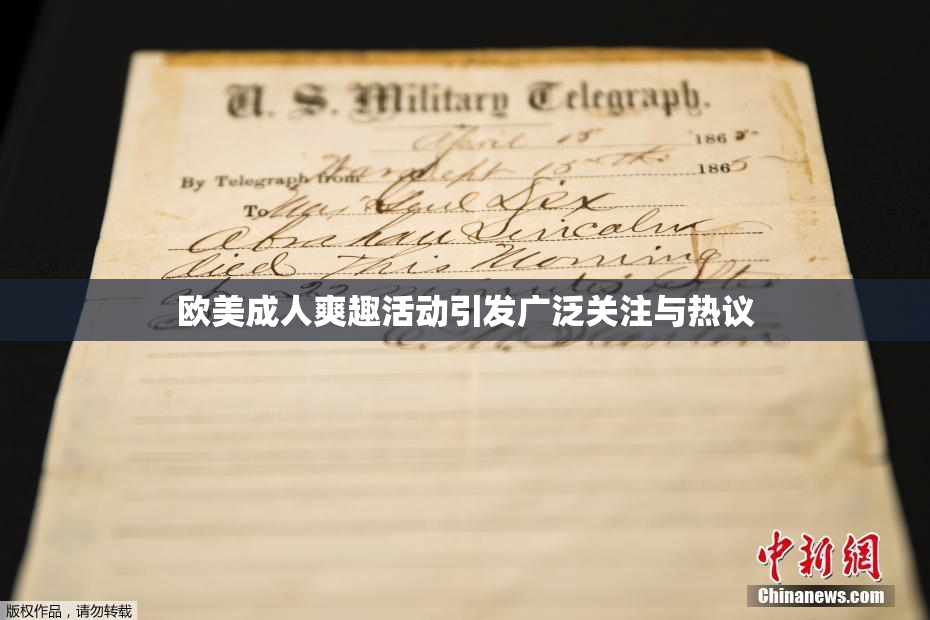 U. S. Military Telegraph.
April 15 1865
By Telegraph from War Dept 15th 1865
To Maj Genl Dix
Abraham Lincoln
died this Morning
at 22 minutes after
欧美成人爽趣活动引发广泛关注与热议
E. M. Stanton
中新网
Chinanews.com
版权作品，请勿转载